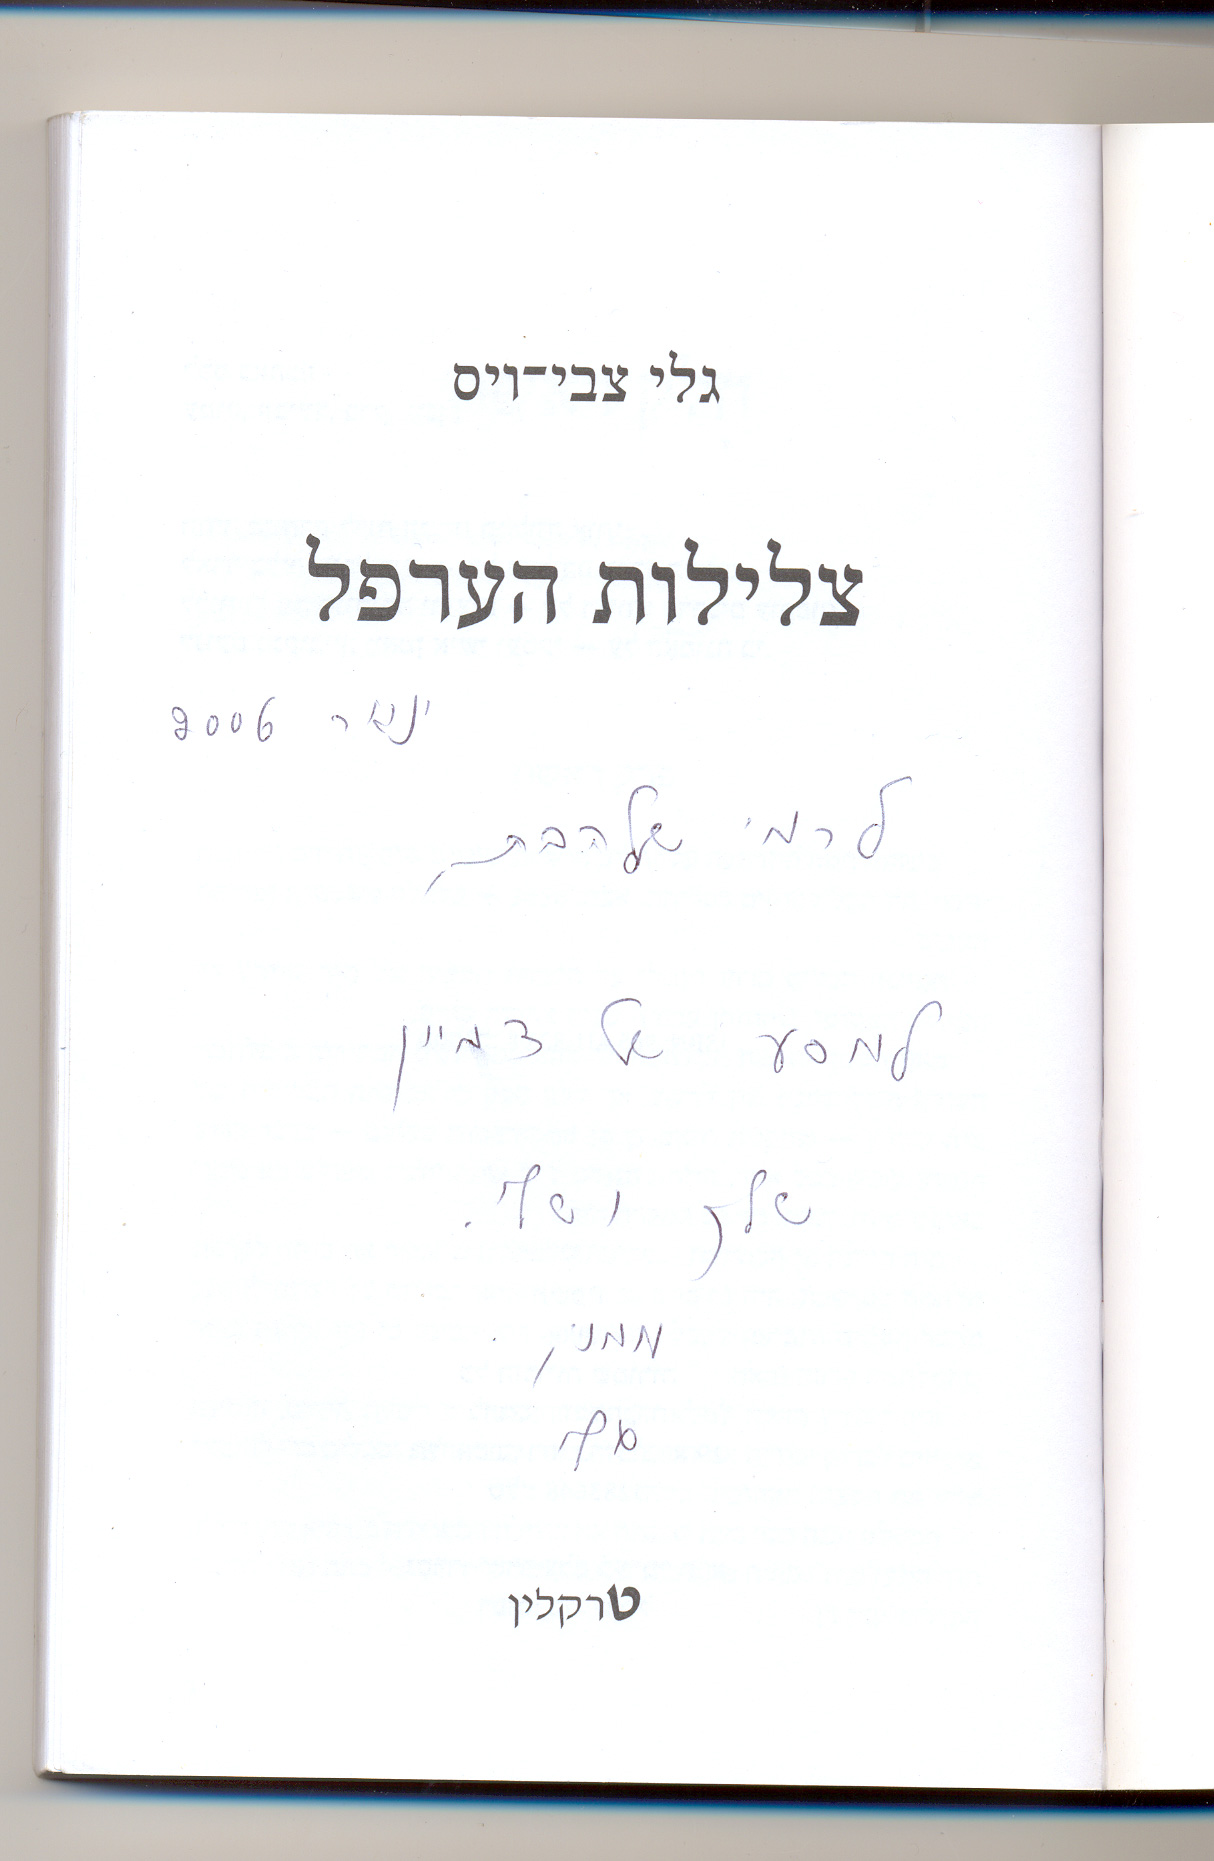 גלי צבי-ויס
צלילות הערפל
ינואר 2006
לרמי שלהבת,
למסע אל דמיין
שלך ושלי.
ממני,
גלי
טרקלין